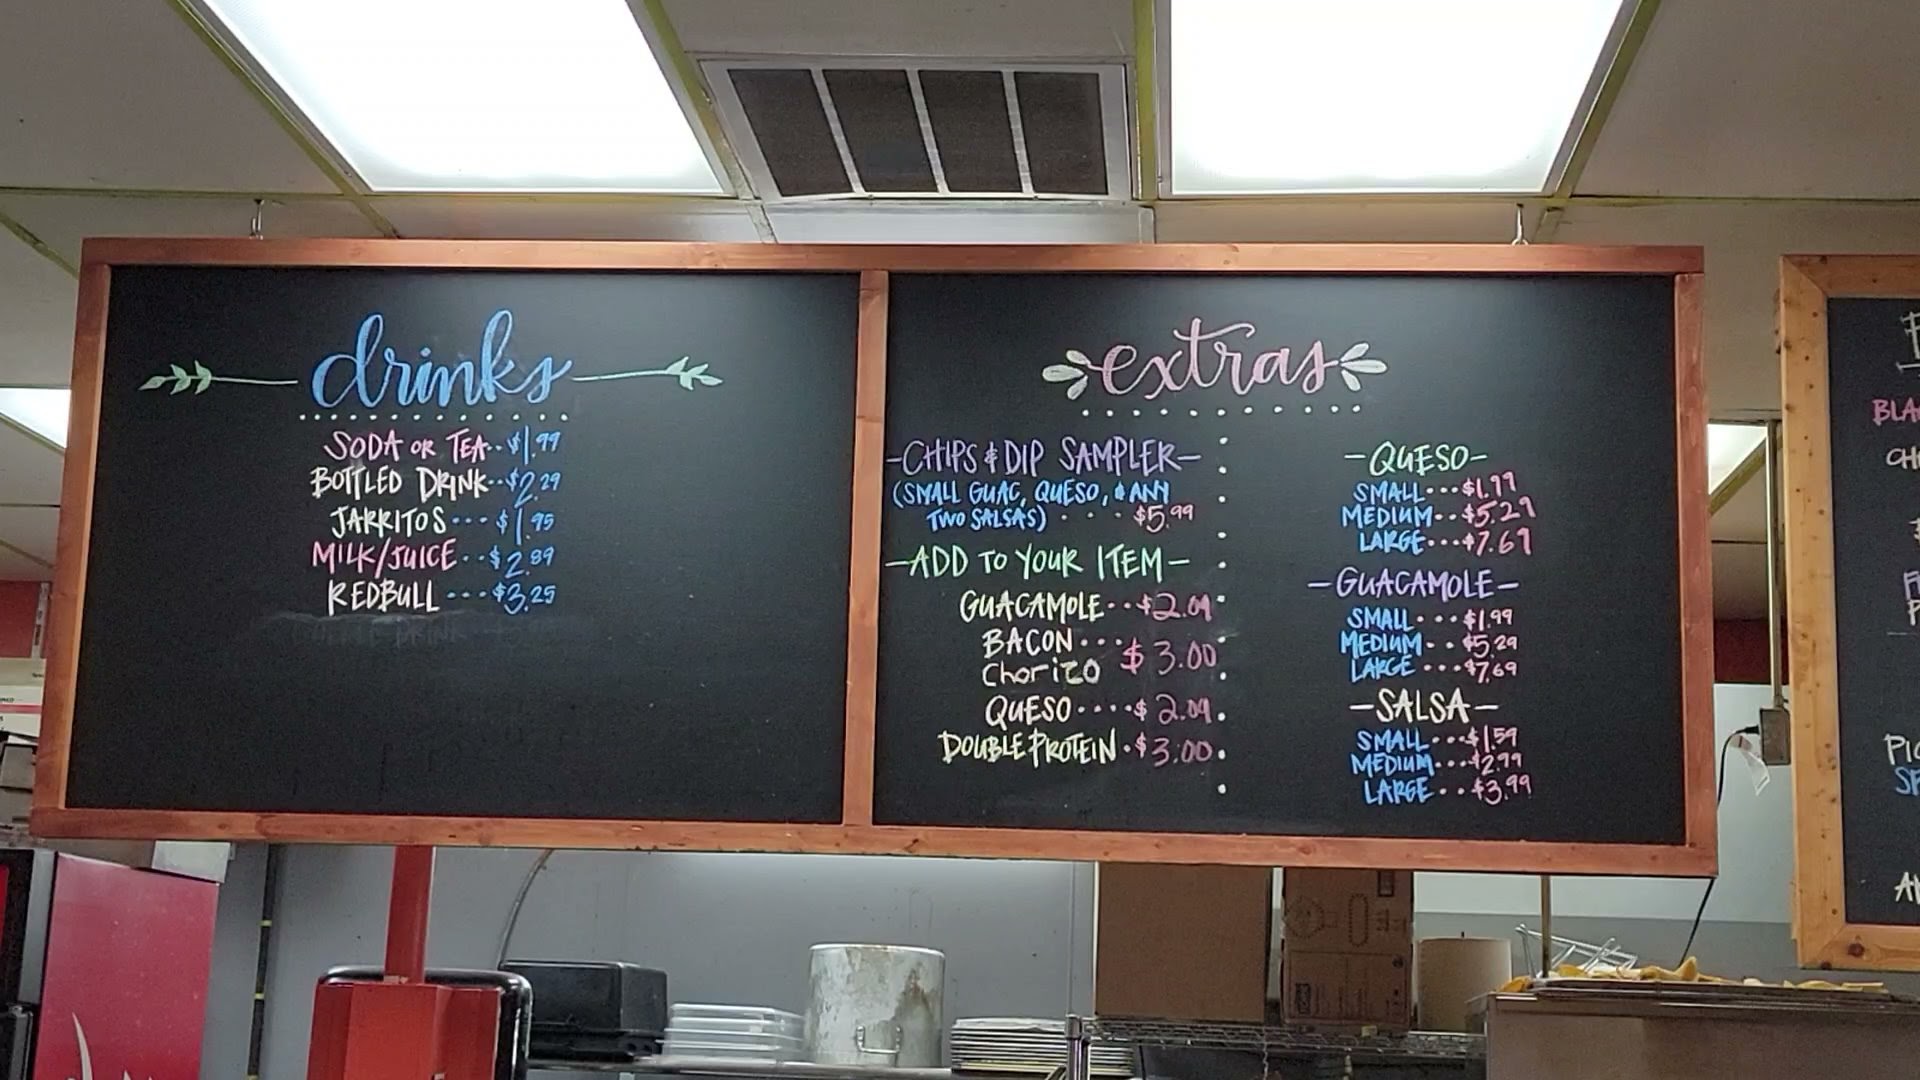 drinks
SODA OR TEA..$1.99
BOTTLED DRINK..$2.29
JARRITOS...$1.95
MILK/JUICE..$2.89
REDBULL...$3.25
extras
-CHIPS & DIP SAMPLER-
(SMALL GUAC, QUESO, & ANY
TWO SALSAS) . . . $5.99
-ADD TO YOUR ITEM-
GUACAMOLE..$2.09
BACON...
Chorizo $3.00
QUESO....$2.09
DOUBLE PROTEIN.$3.00
-QUESO-
SMALL...$1.99
MEDIUM..$5.29
LARGE...$7.69
-GUACAMOLE-
SMALL...$1.99
MEDIUM..$5.29
LARGE...$7.69
-SALSA-
SMALL...$1.59
MEDIUM...$2.99
LARGE..$3.99